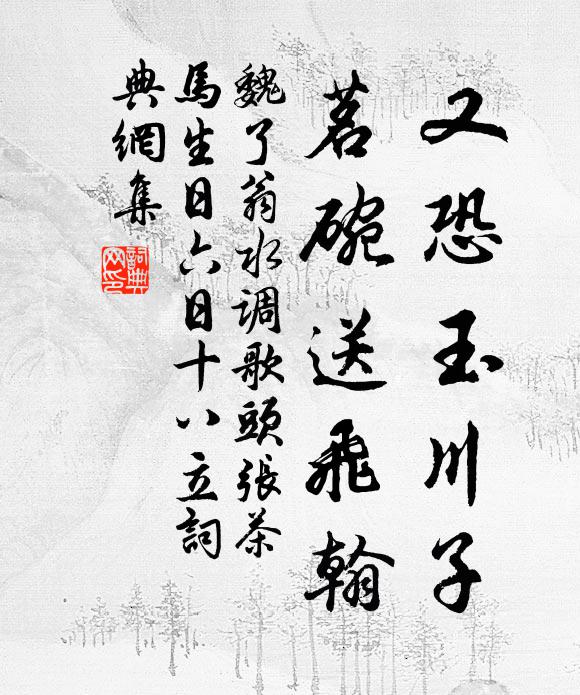 又恐玉川子
茗碗送飛翰
魏了翁水調歌頭張茶
馬生日六日十八立詞
典網集
詞典
网印